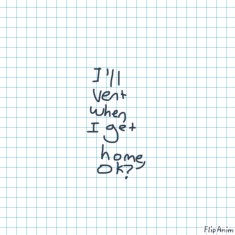 I'll
vent
when
I get
home,
OK?
FlipAnim